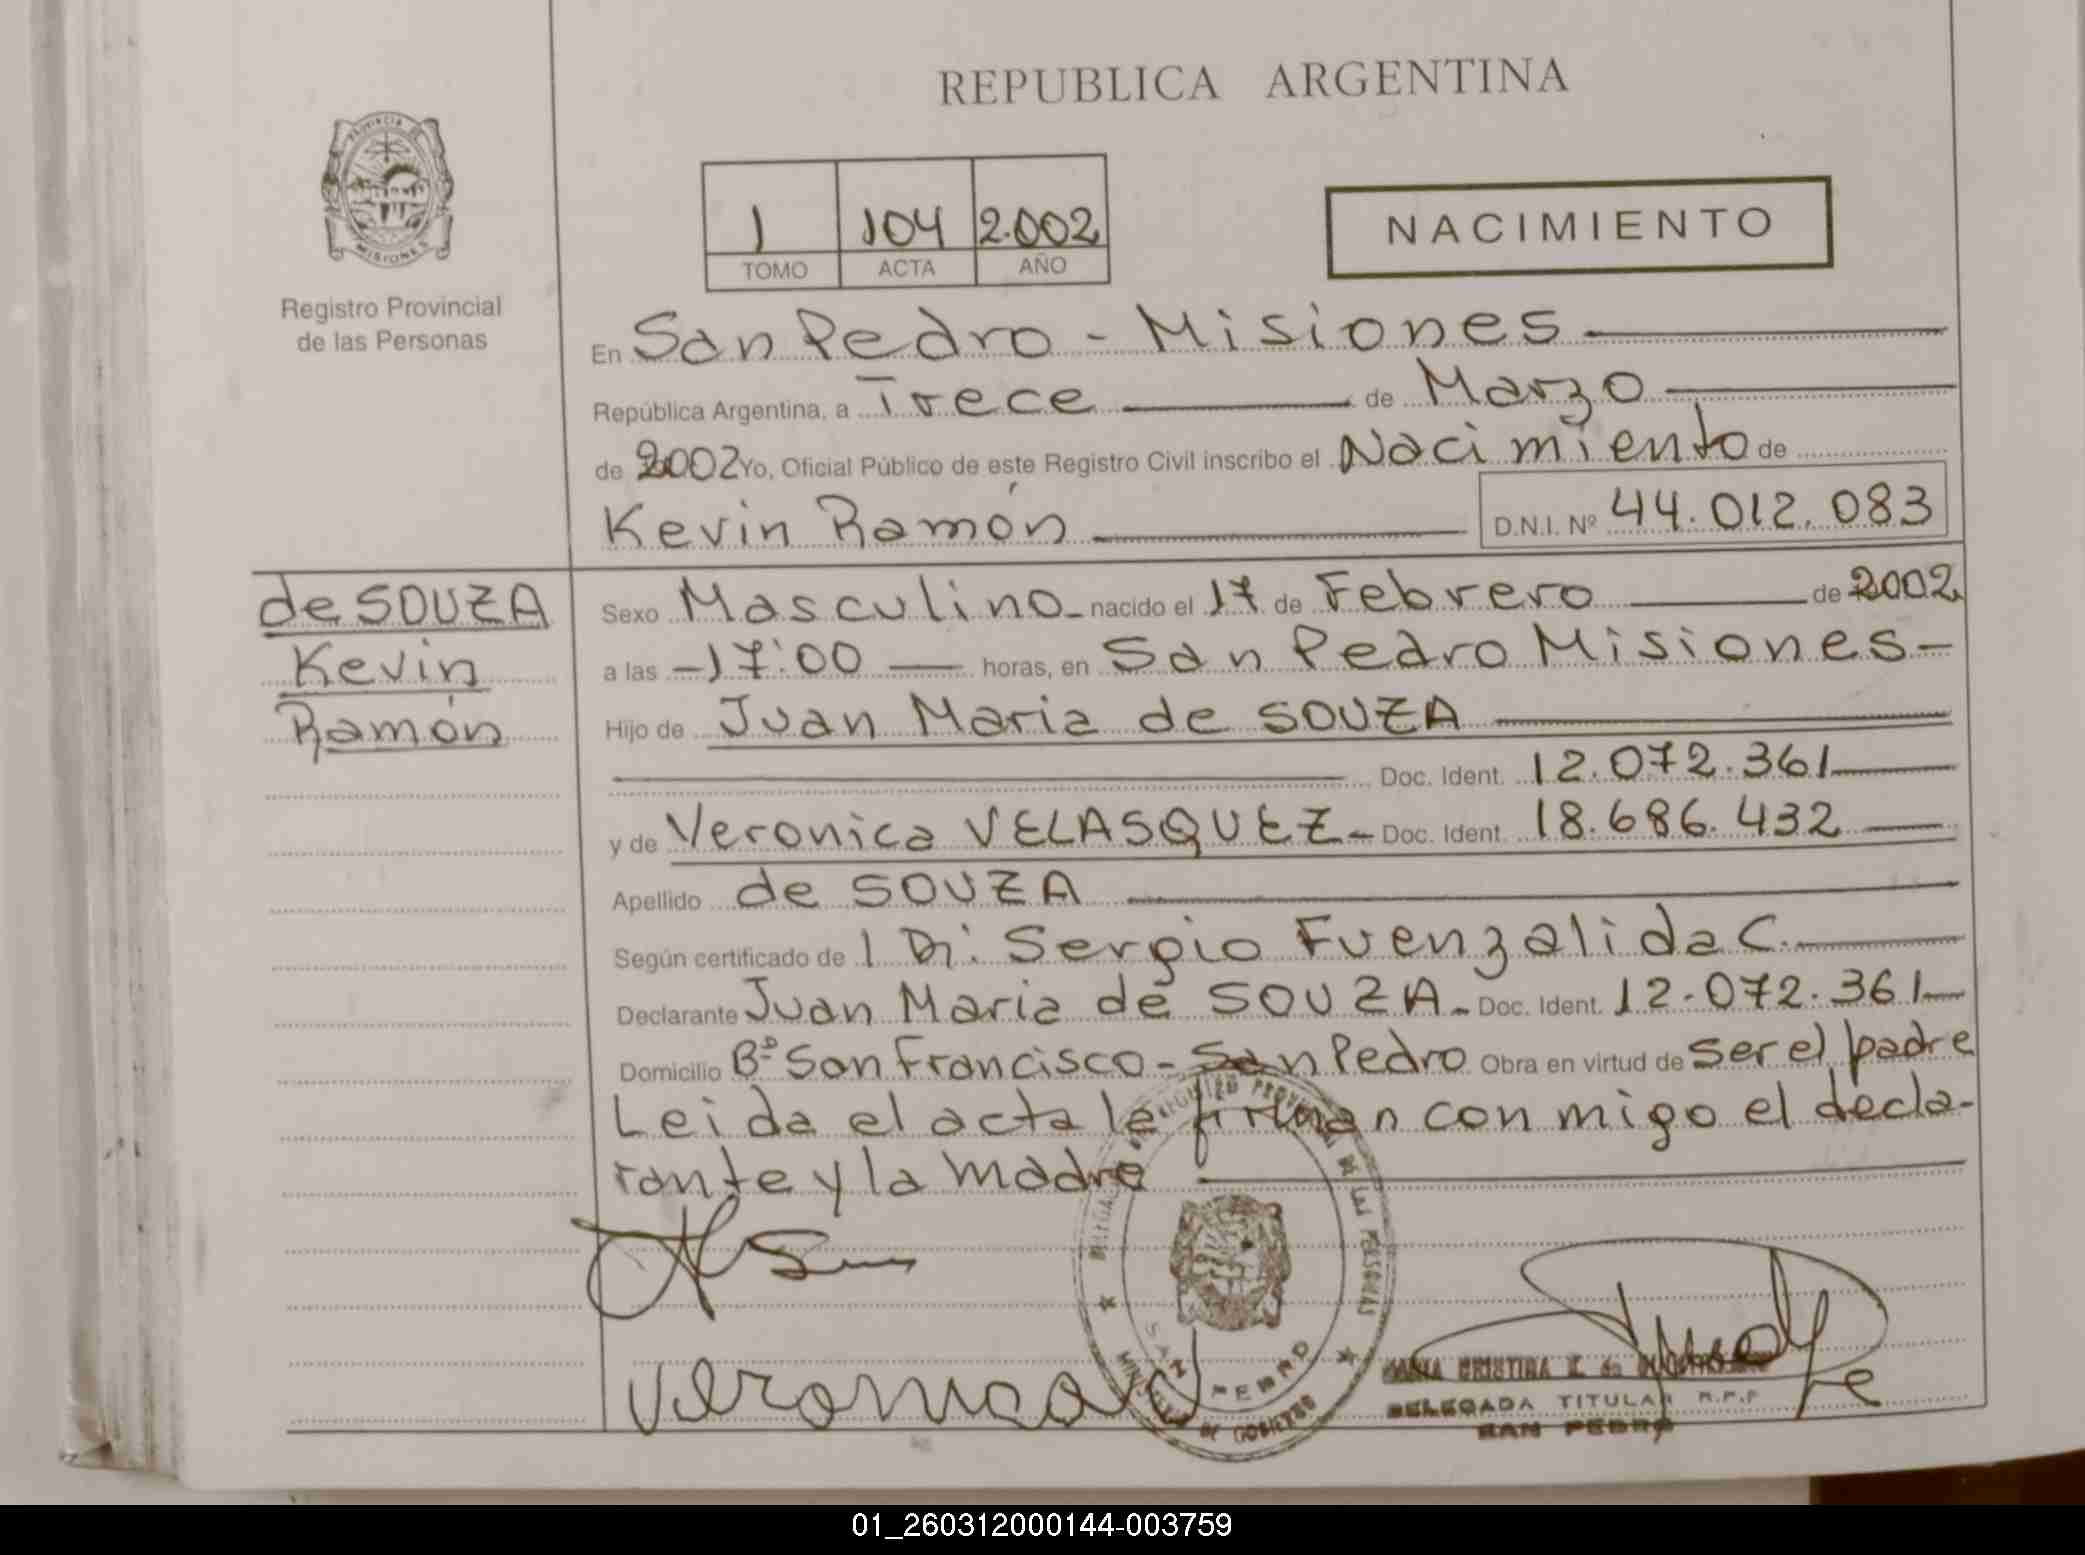 REPUBLICA ARGENTINA
PROVINCIA DE MISIONES
Registro Provincial
de las Personas
1 104 2.002
TOMO ACTA AÑO
NACIMIENTO
En San Pedro - Misiones
República Argentina, a Trece de Marzo
de 2002 Yo, Oficial Público de este Registro Civil inscribo el Nacimiento de
Kevin Ramón D.N.I. Nº 44.012.083
de SOUZA
Kevin
Ramón
Sexo Masculino - nacido el 17 de Febrero de 2002
a las - 17:00 horas, en San Pedro Misiones -
Hijo de Juan Maria de SOUZA
Doc. Ident. 12.072.361
y de Veronica VELASQUEZ - Doc. Ident. 18.686.432
Apellido de SOUZA
Según certificado de 1 Dr. Sergio Fuenzalida C.
Declarante Juan Maria de SOUZA - Doc. Ident. 12.072.361
Domicilio Bº San Francisco - San Pedro Obra en virtud de ser el padre
Leida el acta la firman con migo el decla-
rante y la madre
SAN PEDRO
Veronica
CRISTINA
DELEGADA TITULAR R.P.P
SAN PEDRO
01_260312000144-003759